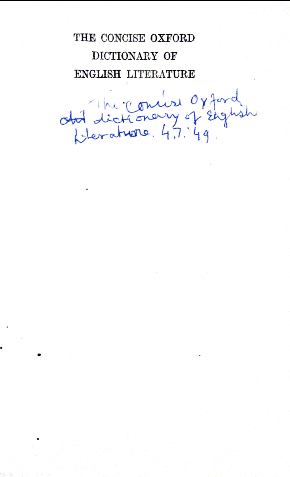 THE CONCISE OXFORD
DICTIONARY OF
ENGLISH LITERATURE
The Concise Oxford
dictionary of English
Literature. 4.7.'49.